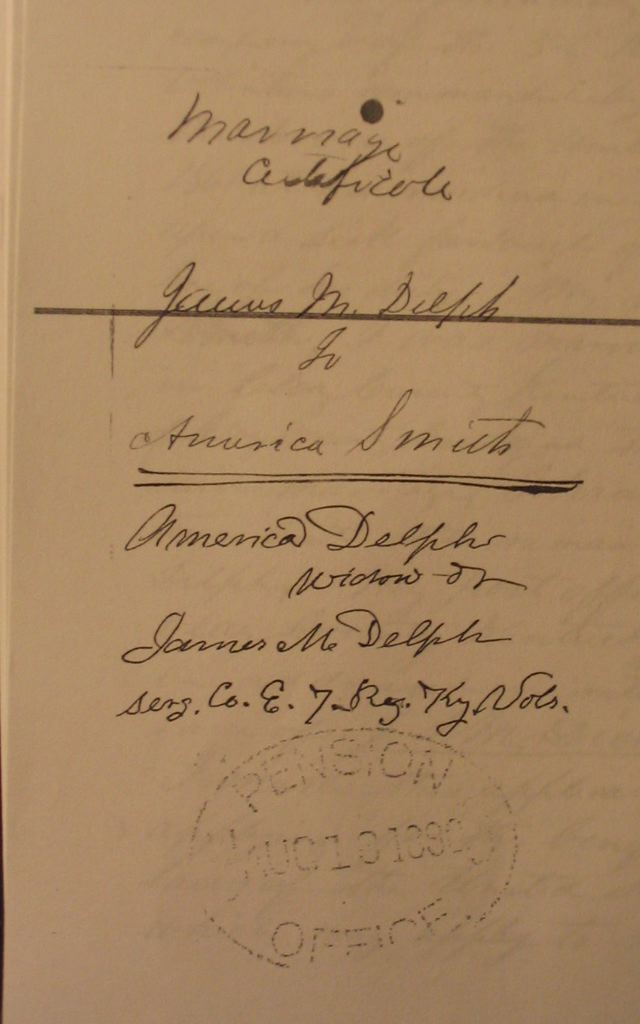 Marriage
Certificate
James M. Delph
To
America Smith
America Delph
widow of
James M Delph
serg. Co. E. 7 Reg. Ky Vols.
PENSION
AUG 18
OFFICE